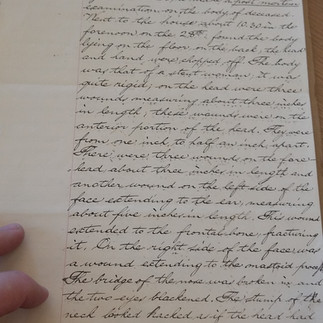 made a post mortem
examination on the body of deceased.
Went to the house about 10:30 in the
forenoon on the 28th. found the body
lying on the floor on the back; the head
and hand were chopped off. The body
was that of a stout woman; it was
quite rigid; on the head were three
wounds measuring about three inches
in length, these wounds were on the
anterior portion of the head. They were
from one inch to half an inch apart.
There were three wounds on the fore-
head about three inches in length and
another wound on the left side of the
face extending to the ear, measuring
about five inches in length. This wound
extended to the frontal bone, fracturing
it. On the right side of the face was
a wound extending to the mastoid
The bridge of the nose was broken in and
the two eyes blackened. The stump of the
neck looked hacked as if the head had